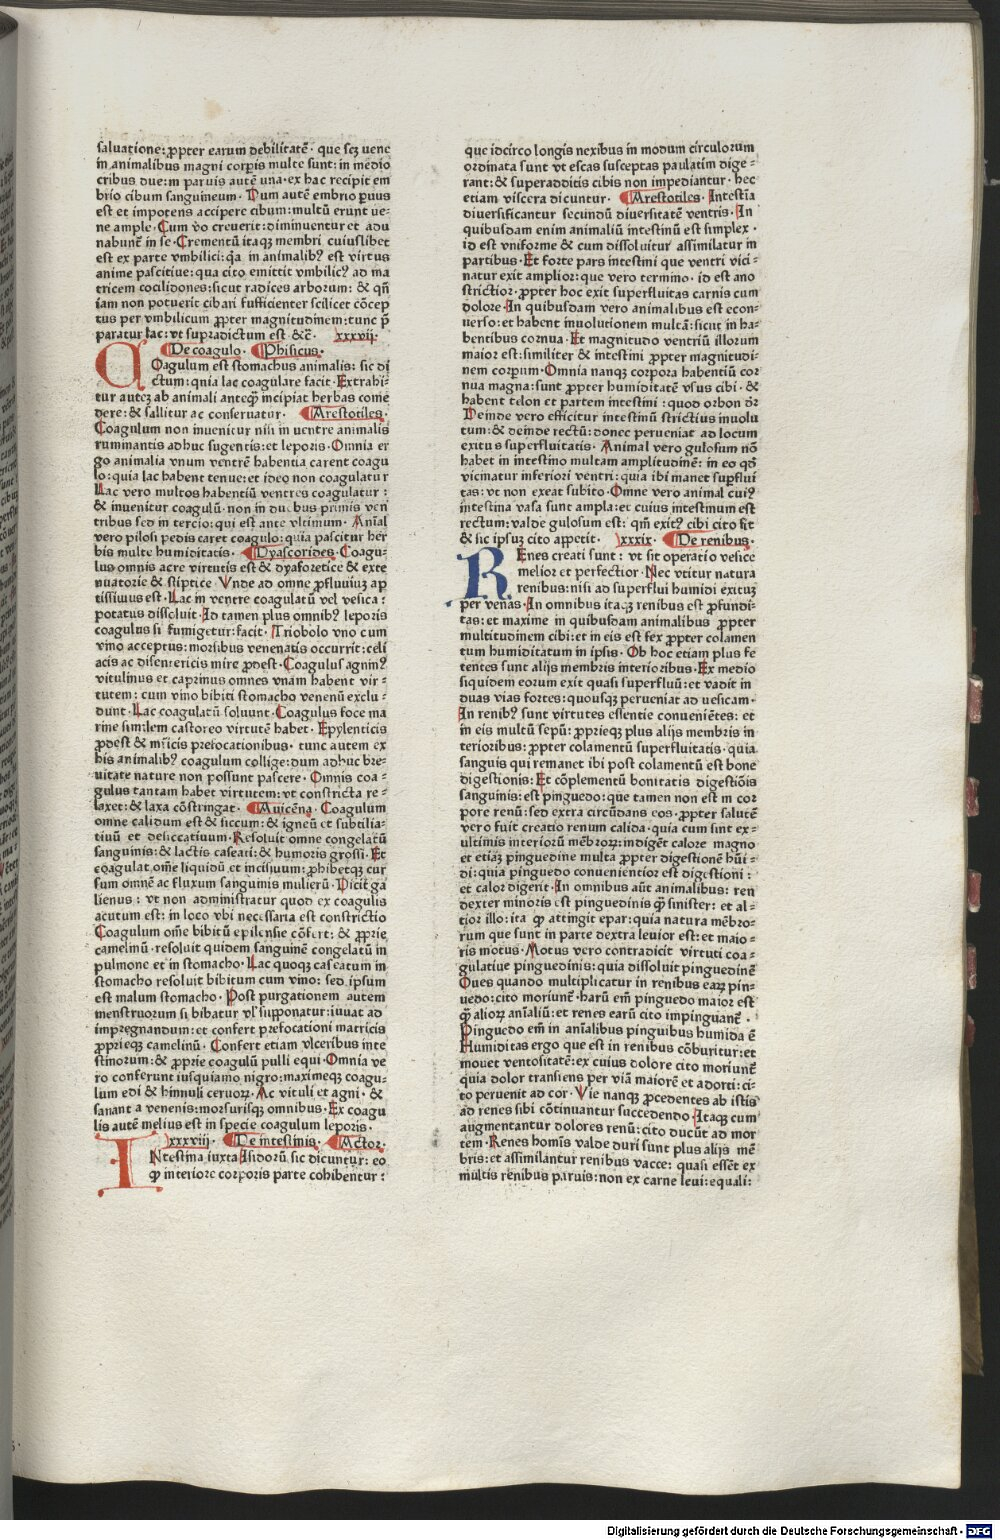 saluatione: ꝓpter earum debilitatē· que scꝫ uene
in animalibus magni corꝑis multe sunt: in medio
cribus due: in paruis autē una· ex hac recipit em
brio cibum sanguineum· Dum autē embrio ꝑuus
est et impotens accipere cibum: multū erunt ue-
ne ample· Cum v̄o creuerit: diminuentur et adu
nabunt̄ in se· Crementū itaqꝫ membri cuiuslibet
est ex parte vmbilici: q̄a in animalibꝰ est virtus
anime pascitiue: qua cito emittit vmbilicꝰ ad ma
tricem cocilidones: sicut radices arborum: & qn̄
iam non potuerit cibari sufficienter scilicet cōcep
tus per vmbilicum ꝓpter magnitudinem: tunc p̄
paratur lac: vt supradictum est &c̄· xxxvij·
De coagulo· Phisicus·
COagulum est stomachus animalis: sic di
ctum: quia lac coagulare facit· Extrahi-
tur auteꝫ ab animali anteqꝫ incipiat herbas come
dere: & sallitur ac conseruatur· Arestotiles·
Coagulum non inuenitur nisi in uentre animalis
ruminantis adhuc sugentis: et leporis· Omnia er
go animalia vnum ventrē habentia carent coagu
lo: quia lac habent tenue: et ideo non coagulatur
Lac vero multos habentiū ventres coagulatur:
& inuenitur coagulū· non in duobus primis ven
tribus sed in tercio: qui est ante vltimum· Anīal
vero pilosi pedis caret coagulo: quia pascitur her
bis multe humiditatis· Dyascorides· Coagu-
lus omnis acre virtutis est & dyaforetice & exte
nuatorie & stiptice· Vnde ad omne ꝓfluuiuꝫ ap
tissimus est· Lac in ventre coagulatū vel vesica:
potatus dissoluit· Id tamen plus omnibꝰ leporis
coagulus si fumigetur: facit· Triobolo vno cum
vino acceptus: morsibus venenatis occurrit: celi
acis ac disentericis mire ꝓdest· Coagulus agninꝰ
vitulinus et caprinus omnes vnam habent vir-
tutem: cum vino bibiti stomacho venenū exclu-
dunt· Lac coagulatū soluunt· Coagulus foce ma
rine similem castoreo virtutē habet· Epylenticis
ꝓdest & mr̄icis prefocationibus· tunc autem ex
his animalibꝰ coagulum collige: dum adhuc bre-
uitate nature non possunt pascere· Omnis coa-
gulus tantam habet virtutem: vt constricta re-
laxet: & laxa cōstringat· Auicēna· Coagulum
omne calidum est & siccum: & igneū et subtilia-
tiuū et desiccatiuum· Resoluit omne congelatū
sanguinis: & lactis caseati: & humoris grossi· Et
coagulat om̄e liquidū et incisiuum: ꝓhibetqꝫ cur
sum omnē ac fluxum sanguinis mulierū· Dicit ga
lienus: vt non administratur quod ex coagulis
acutum est: in loco vbi necessaria est constrictio
Coagulum om̄e bibitū epilensie cōfert: & ꝓprie
camelinū· resoluit quidem sanguinē congelatū in
pulmone et in stomacho· Lac quoqꝫ caseatum in
stomacho resoluit bibitum cum vino: sed ipsum
est malum stomacho· Post purgationem autem
menstruorum si bibatur vl̄ supponatur: iuuat ad
impregnandum: et confert prefocationi matricis
ꝓprieqꝫ camelinū· Confert etiam vlceribus inte
stinorum: & ꝓprie coagulū pulli equi· Omnia ve
ro conferunt iusquiamo nigro: maximeqꝫ coagu-
lum edi & hinnuli ceruoꝝ· Ac vituli et agni· &
sanant a venenis: morsurisqꝫ omnibus· Ex coagu
lis autē melius est in specie coagulum leporis·
xxxviij· De intestinis· Actor·
INtestina iuxta Isidorū sic dicuntur: eo
ꝙ interiore corꝑoris parte cohibentur:
que idcirco longis nexibus in modum circulorum
ordinata sunt vt escas susceptas paulatim dige-
rant: & superadditis cibis non impediantur· hec
etiam viscera dicuntur· Arestotiles· Intestīa
diuersificantur secundū diuersitatē ventris· In
quibusdam enim animaliū intestinū est simplex·
id est vniforme & cum dissoluitur assimilatur in
partibus· Et forte pars intestini que ventri vici-
natur exit amplior: que vero termino· id est ano
strictior· ꝓpter hoc exit superfluitas carnis cum
dolore· In quibusdam vero animalibus est econ-
uerso: et habent inuolutionem multā: sicut in ha-
bentibus cornua· Et magnitudo ventriū illorum
maior est: similiter & intestini ꝓpter magnitudi-
nem corpum· Omnia nanqꝫ corpora habentiū cor
nua magna: sunt ꝓpter humiditatē vsus cibi· &
habent telon et partem intestini: quod orbon dr̄
Deinde vero efficitur intestinū strictius inuolu
tum: & deinde rectū: donec perueniat ad locum
exitus superfluitatis· Animal vero gulosum nō
habet in intestino multam amplitudinē: in eo qd̄
vicinatur inferiori ventri: quia ibi manet suꝑflui
tas: vt non exeat subito· Omne vero animal cuiꝰ
intestina vasa sunt ampla: et cuius intestinum est
rectum: valde gulosum est: qm̄ exitꝰ cibi cito fit
& sic ipsuꝫ cito appetit· xxxix· De renibus·
REnes creati sunt: vt sit operatio vesice
melior et perfectior· Nec vtitur natura
renibus: nisi ad superflui humidi exituꝫ
per venas· In omnibus itaqꝫ renibus est ꝓfundi-
tas: et maxime in quibusdam animalibus ꝓpter
multitudinem cibi: et in eis est fex ꝓpter colamen
tum humiditatum in ipsis· Ob hoc etiam plus fe
tentes sunt alijs membris interioribus· Ex medio
siquidem eorum exit quasi superfluū: et vadit in
duas vias fortes: quousqꝫ perueniat ad vesicam·
In renibꝰ sunt virtutes essentie conueniētes: et
in eis multū sepū: ꝓprieqꝫ plus alijs membris in
terioribus: ꝓpter colamentū superfluitatis· quia
sanguis qui remanet ibi post colamentū est bone
digestionis: Et cōplementū bonitatis digestiōis
sanguinis: est pinguedo: que tamen non est in cor
pore renū: sed extra circūdans eos· ꝓpter salutē
vero fuit creatio renum calida· quia cum sint ex-
ultimis interiorū mēbroꝝ: indigēt calore magno
et etiāꝫ pinguedine multa ꝓpter digestionē hūi-
di: quia pinguedo conuenientior est digestioni:
et calor digerit· In omnibus aūt animalibus: ren
dexter minoris est pinguedinis ꝙ̄ sinister: et al-
tior illo: ita ꝙ attingit epar: quia natura mēbro-
rum que sunt in parte dextra leuior est: et maio-
ris motus· Motus vero contradicit virtuti coa-
gulatiue pinguedinis: quia dissoluit pinguedinē
Oues quando multiplicatur in renibus eaꝝ pin-
uedo: cito moriunt̄· harū em̄ pinguedo maior est
ꝙ̄ alioꝝ anīaliū: et renes earū cito impinguant̄·
Pinguedo em̄ in anīalibus pinguibus humida ē
Humiditas ergo que est in renibus cōburitur: et
mouet ventositatē: ex cuius dolore cito moriunt̄
quia dolor transiens per viā maiorē et adorti: ci-
to peruenit ad cor· Vie nanqꝫ ꝓcedentes ab istis
ad renes sibi cōtinuantur succedendo· Itaqꝫ cum
augmentantur dolores renū: cito ducūt ad mor
tem· Renes homīs valde duri sunt plus alijs mē
bris: et assimilantur renibus vacce: quasi essēt ex
multis renibus paruis: non ex carne leui: equali:
Digitalisierung gefördert durch die Deutsche Forschungsgemeinschaft · DFG